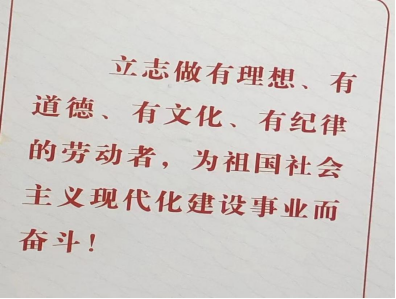 立志做有理想、有
道德、有文化、有纪律
的劳动者，为祖国社会
主义现代化建设事业而
奋斗！